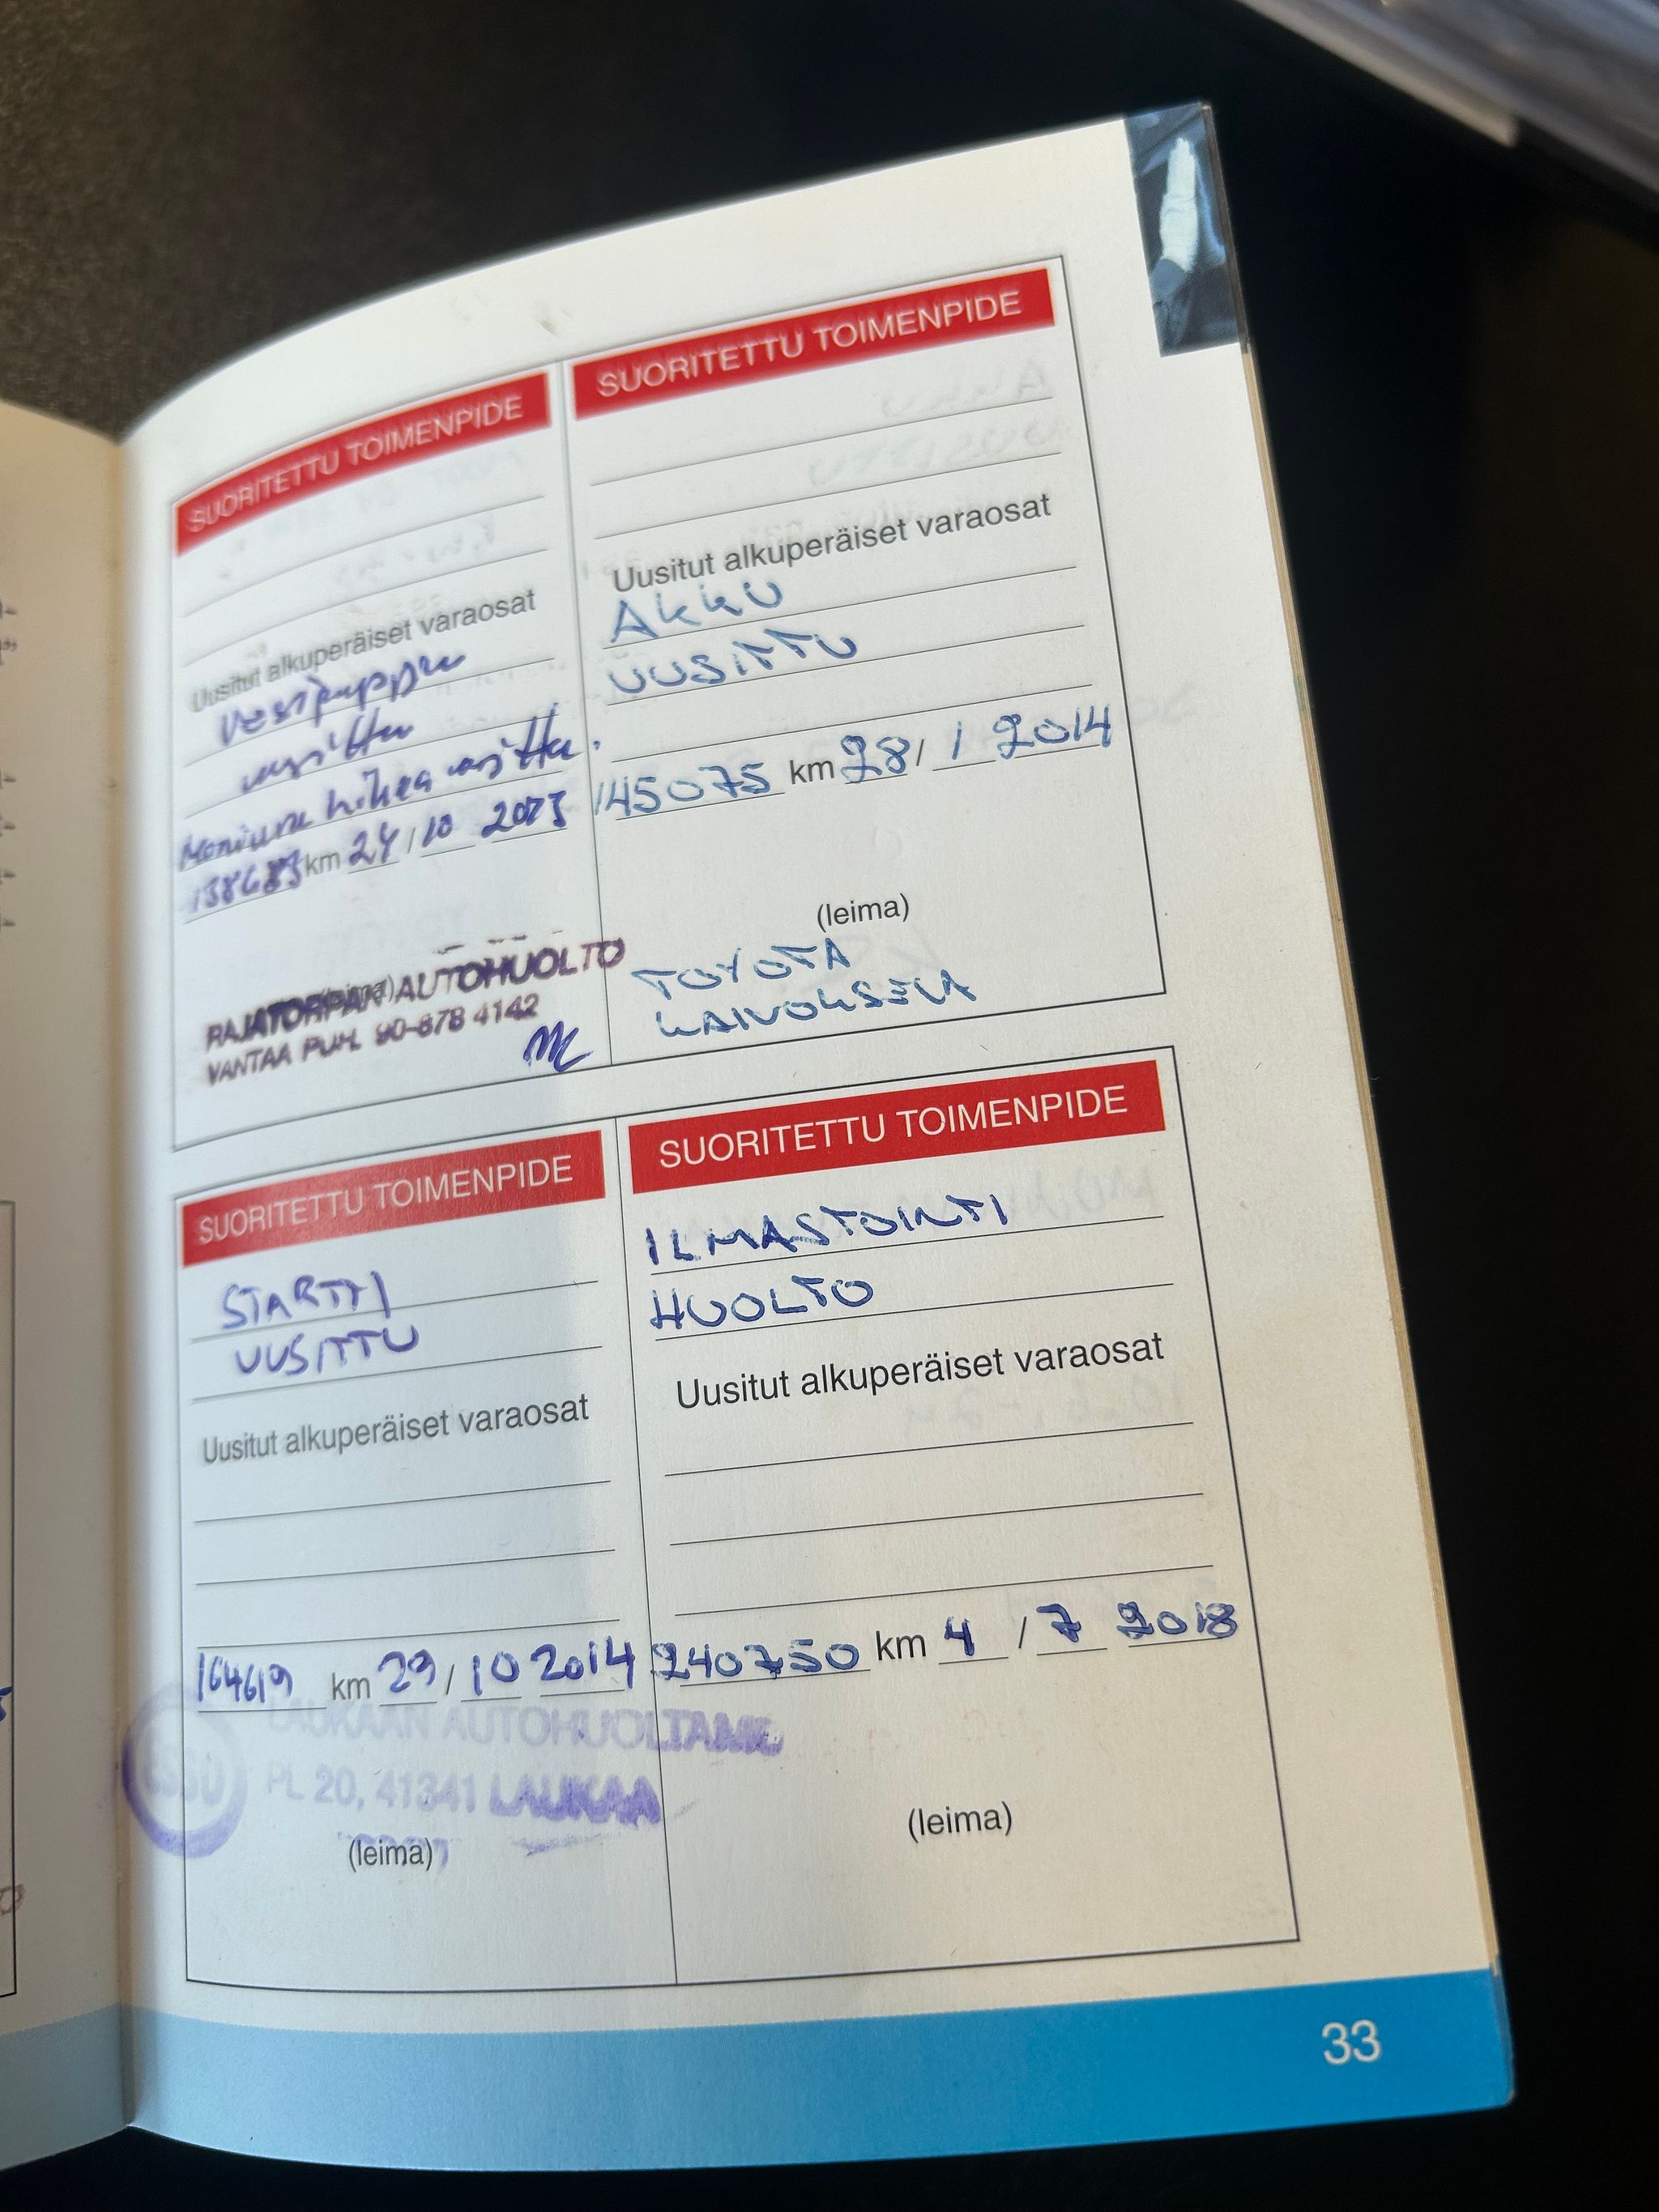 SUORITETTU TOIMENPIDE
Uusitut alkuperäiset varaosat
Vesipumppu
uusittu
Moniura hihna uusittu.
km 24/10 2013
RAJATORPAN AUTOHUOLTO
VANTAA PUH. 90-878 4142
SUORITETTU TOIMENPIDE
Uusitut alkuperäiset varaosat
AKKU
UUSITTU
145075 km 28/1 2014
(leima)
TOYOTA
KAIVOKSELA
SUORITETTU TOIMENPIDE
STARTTI
UUSITTU
Uusitut alkuperäiset varaosat
164619 km 29/10 2014
LAUKAAN AUTOHUOLTAMO
PL 20, 41341 LAUKAA
(leima)
SUORITETTU TOIMENPIDE
ILMASTOINTI
HUOLTO
Uusitut alkuperäiset varaosat
240750 km 4/7 2018
(leima)
33